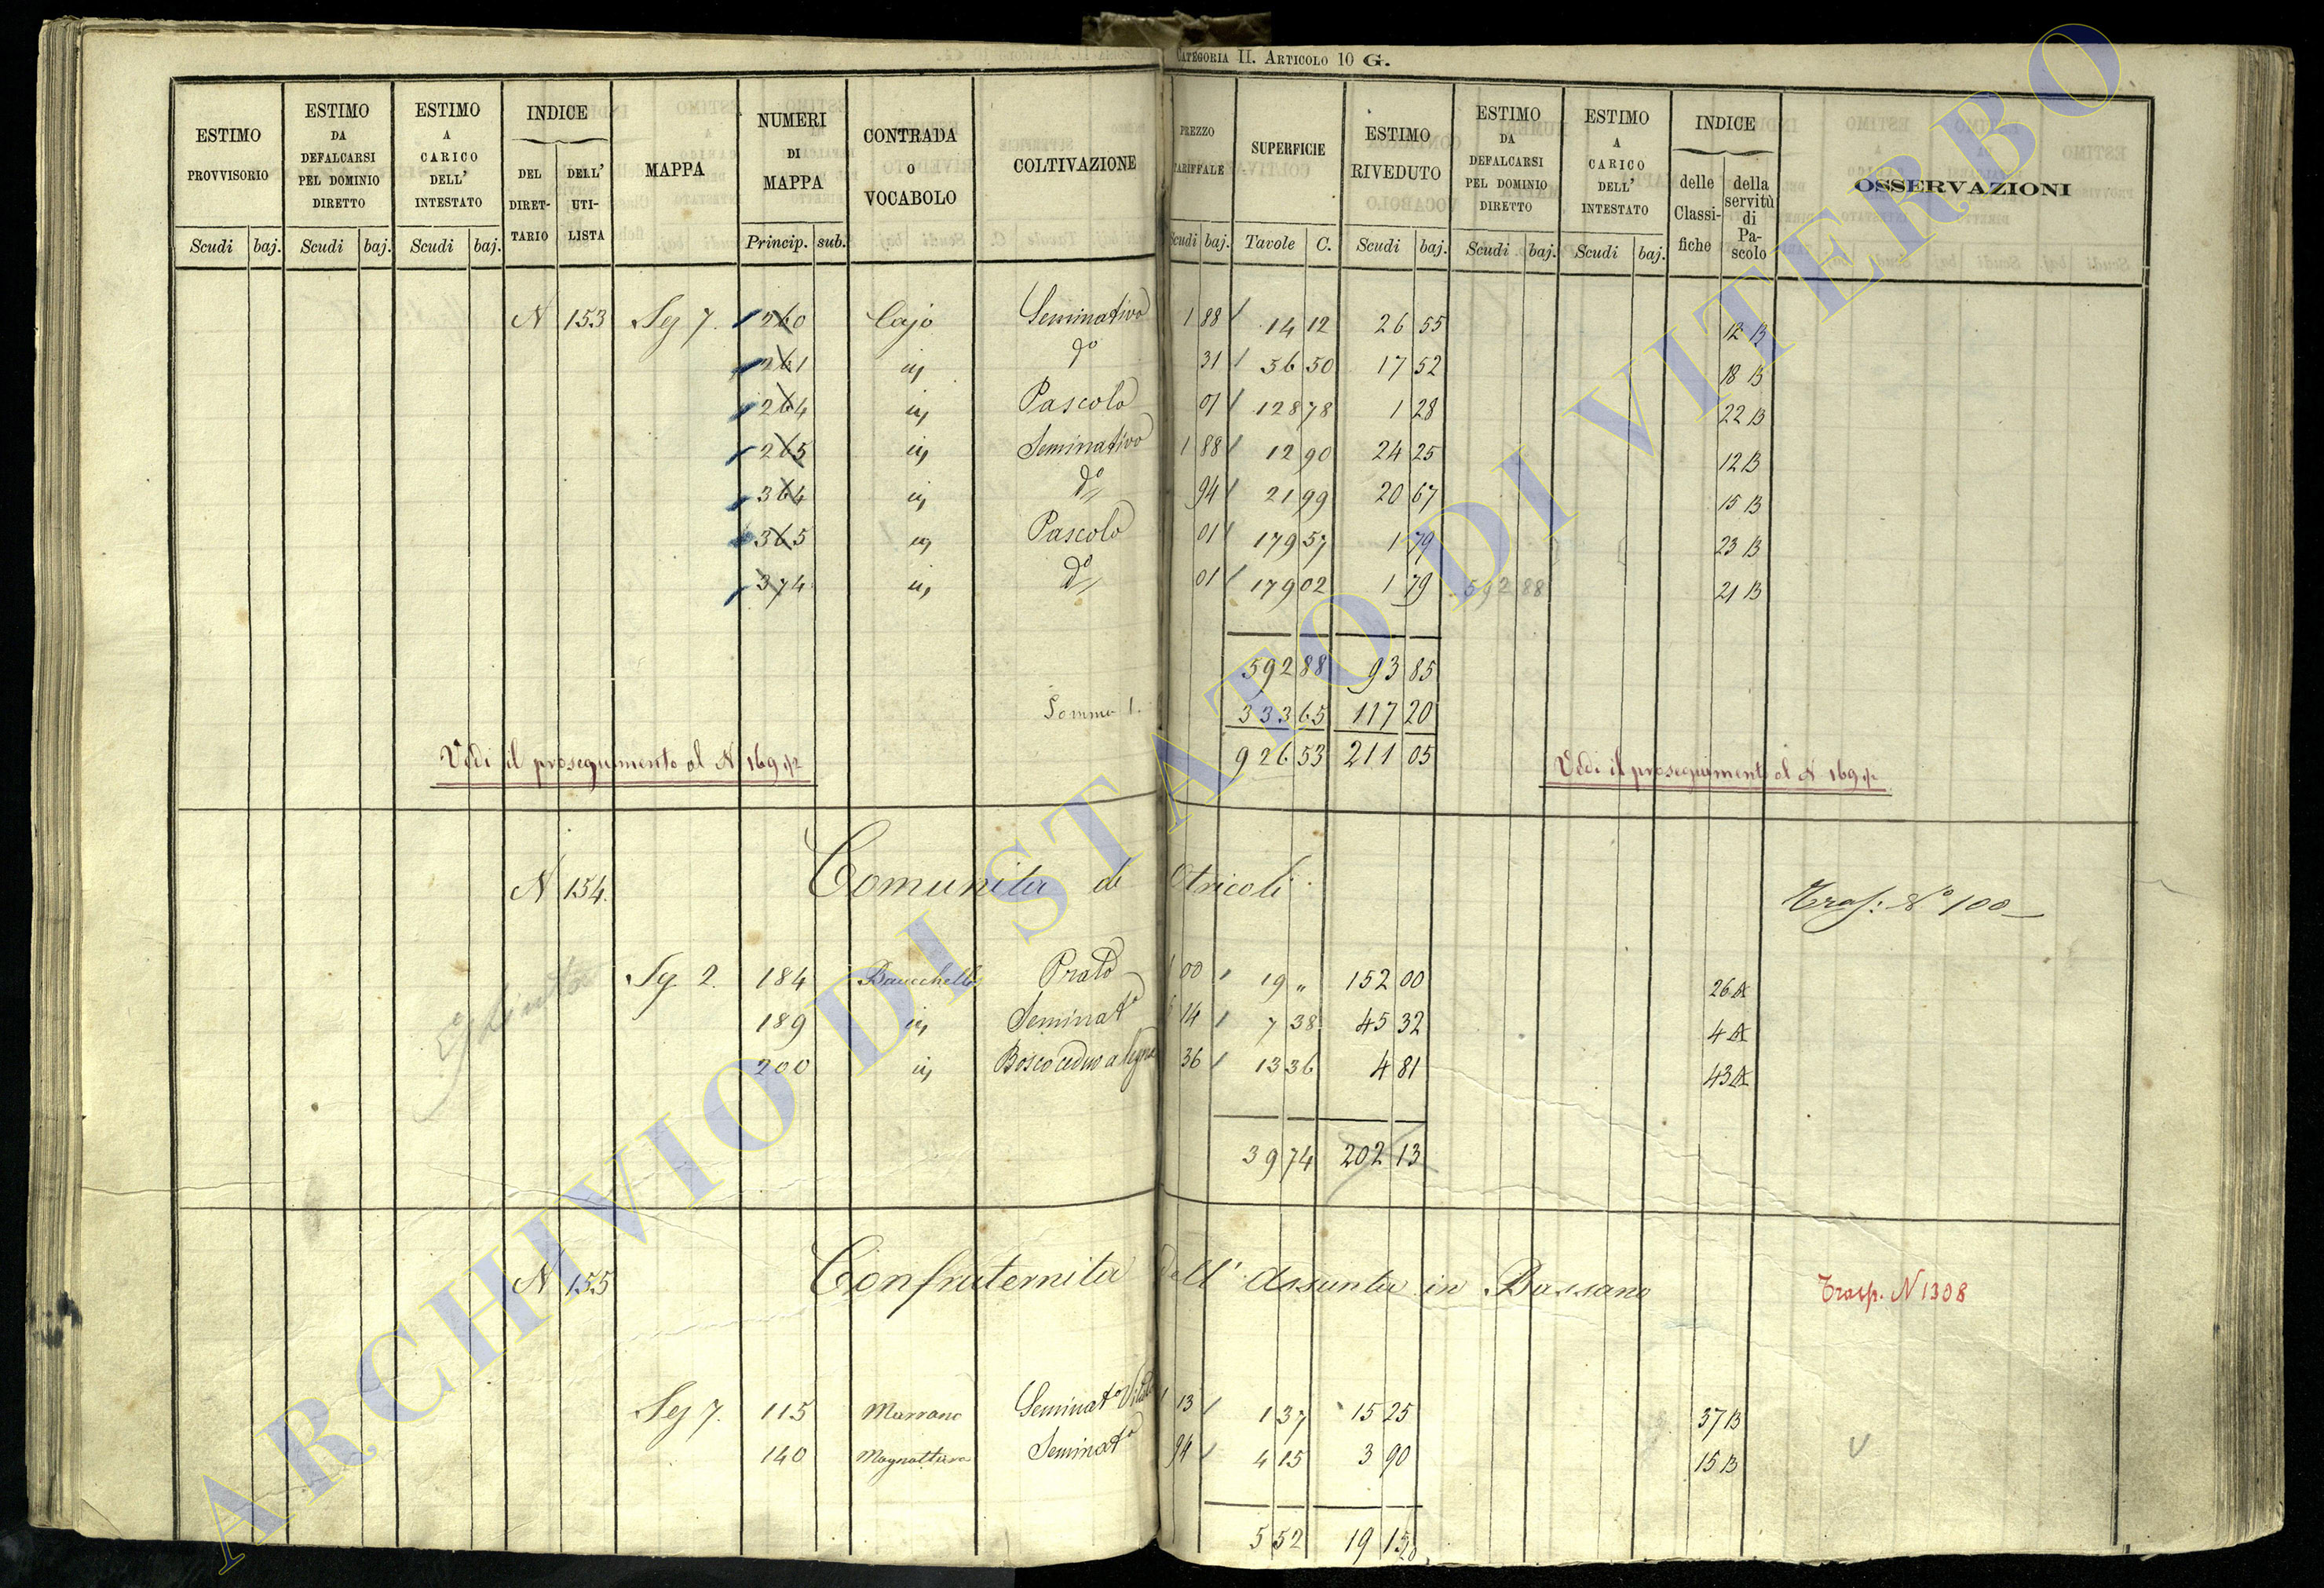 CATEGORIA II. ARTICOLO 10 G.
ESTIMO PROVVISORIO Scudi baj.
ESTIMO DA DEFALCARSI PEL DOMINIO DIRETTO Scudi baj.
ESTIMO A CARICO DELL' INTESTATO Scudi baj.
INDICE DEL DIRET- TARIO DELL' UTI- LISTA
MAPPA
NUMERI DI MAPPA Princip. sub.
CONTRADA O VOCABOLO
COLTIVAZIONE
PREZZO TARIFFALE Scudi baj.
SUPERFICIE Tavole C.
ESTIMO RIVEDUTO Scudi baj.
ESTIMO DA DEFALCARSI PEL DOMINIO DIRETTO Scudi baj.
ESTIMO A CARICO DELL' INTESTATO Scudi baj.
INDICE delle Classi- fiche della servitù di Pa- scolo
OSSERVAZIONI
N 153 Sez 7. 260 Cajo Seminativo 1 88 14 12 26 55 12 B
261 id do 31 56 50 17 52 18 B
264 id Pascolo 01 128 78 1 28 22 B
265 id Seminativo 1 88 12 90 24 25 12 B
364 id do 94 21 99 20 67 15 B
365 id Pascolo 01 179 57 1 79 23 B
374 id do 01 179 02 1 79 592 88 21 B
592 88 93 85
Somma 333 65 117 20
926 53 211 05
Vedi il proseguimento al N 169 1/2 Vedi il proseguimento al N 169 1/2
N 154. Comunita di Otricoli. Trasp: No 100
Sez. 2. 184 Prato 00 19 " 152 00 26 A
189 id Seminato 14 7 38 45 32 4 A
200 id Bosco ceduo a legna 36 13 36 4 81 43 A
39 74 202 13
N 155 Confraternita dell' Assunta in Bassano Trasp. N 1308
Sez 7. 115 Murrano Seminato Vitato 13 1 37 15 25 37 B
140 Seminato 94 4 15 3 90 15 B
5 52 19 15
ARCHIVIO DI STATO DI VITERBO